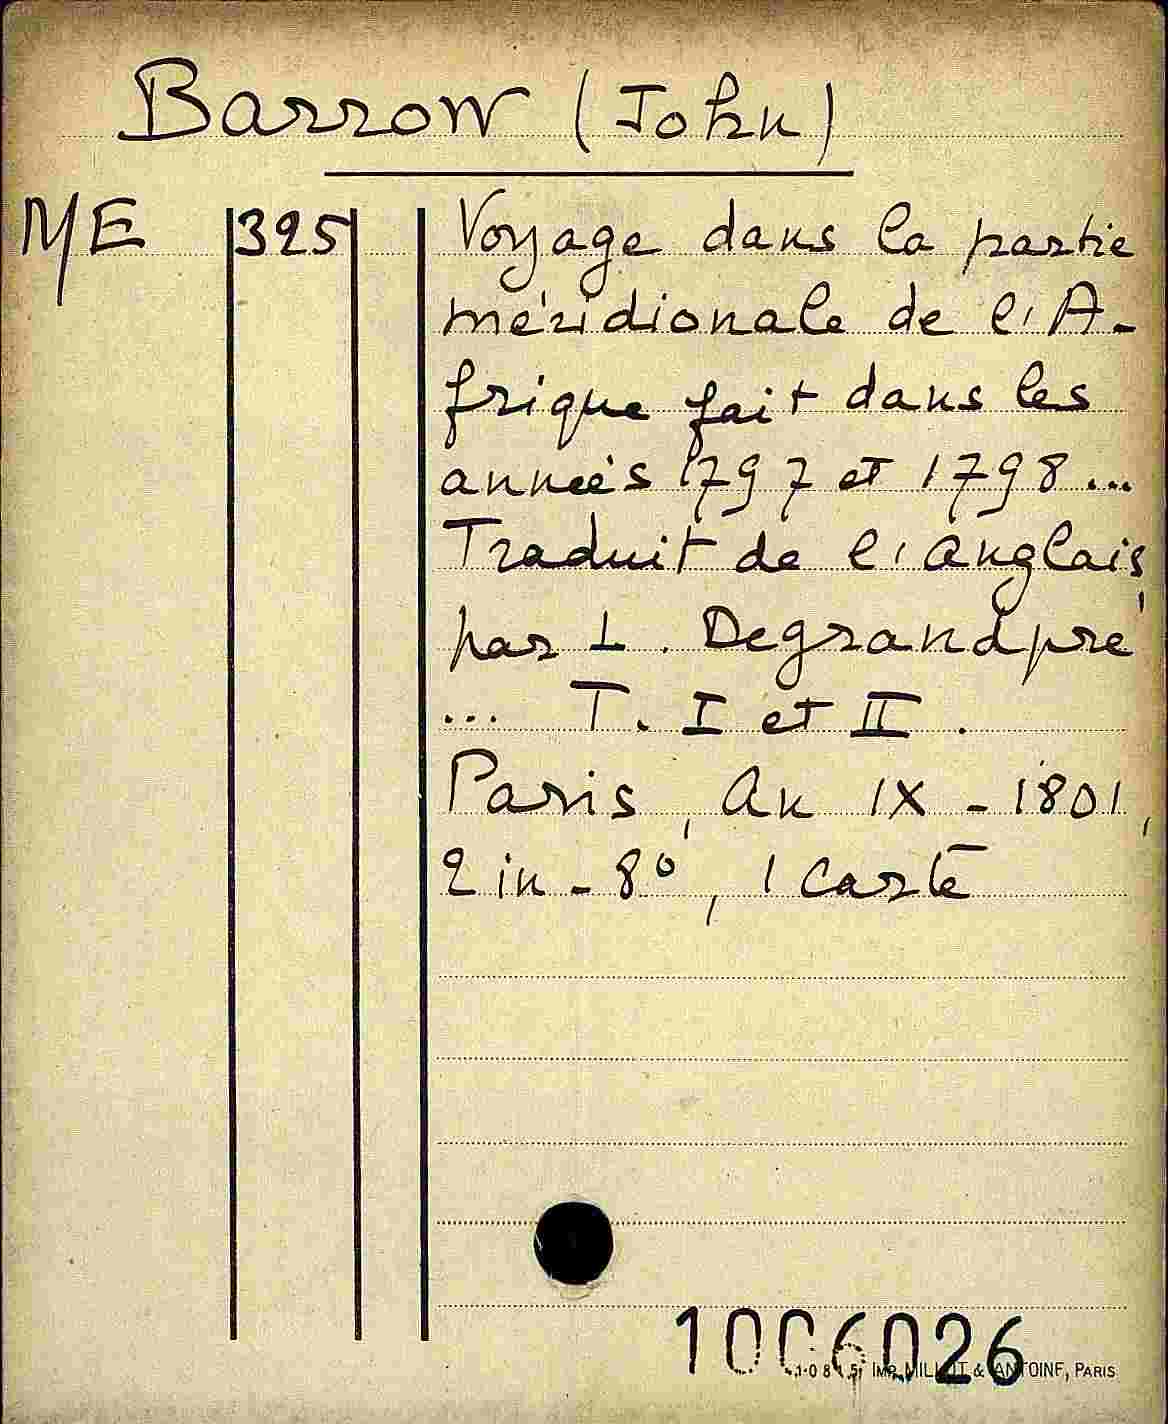 Barrow (John)
ME 325 Voyage dans la partie
méridionale de l'A-
frique fait dans les
années 1797 et 1798 ...
Traduit de l'anglais,
par L. Degrandpré
... T. I et II.
Paris, An IX - 1801,
2 in-8°, 1 carte
1006026
Imp. MILLOT & ANTOINE, PARIS